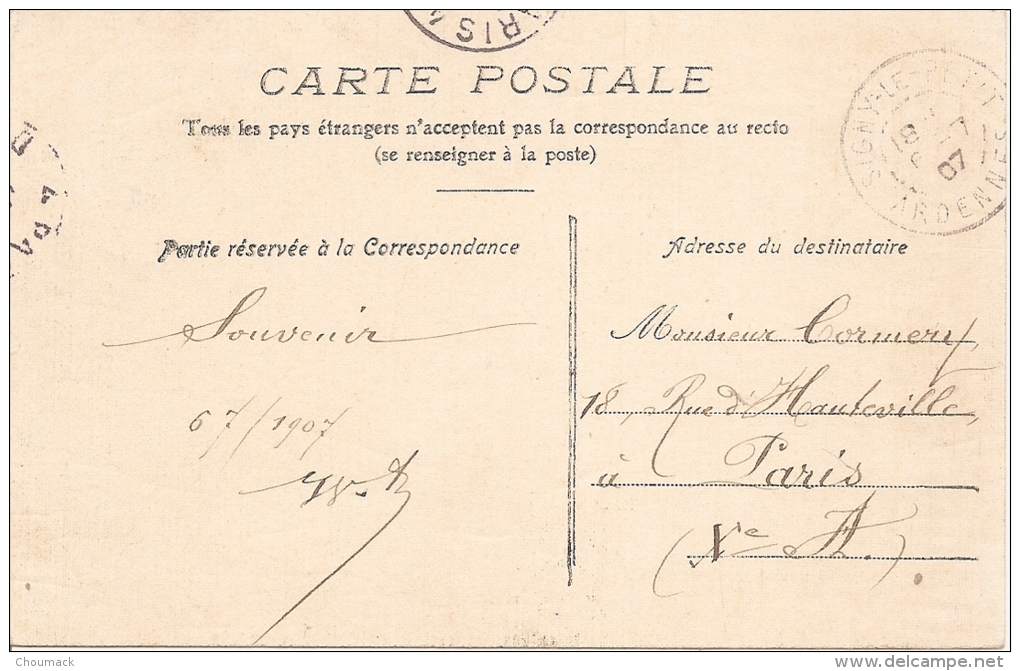 PARIS
CARTE POSTALE
Tous les pays étrangers n'acceptent pas la correspondance au recto
(se renseigner à la poste)
SIGNY-LE-PETIT
18
7
07
ARDENNES
Partie réservée à la Correspondance
Adresse du destinataire
Souvenir
Monsieur Cormery,
18, Rue d'Hauteville,
à Paris
(Xe A.)
6 7/1907
Choumack
www.delcampe.net